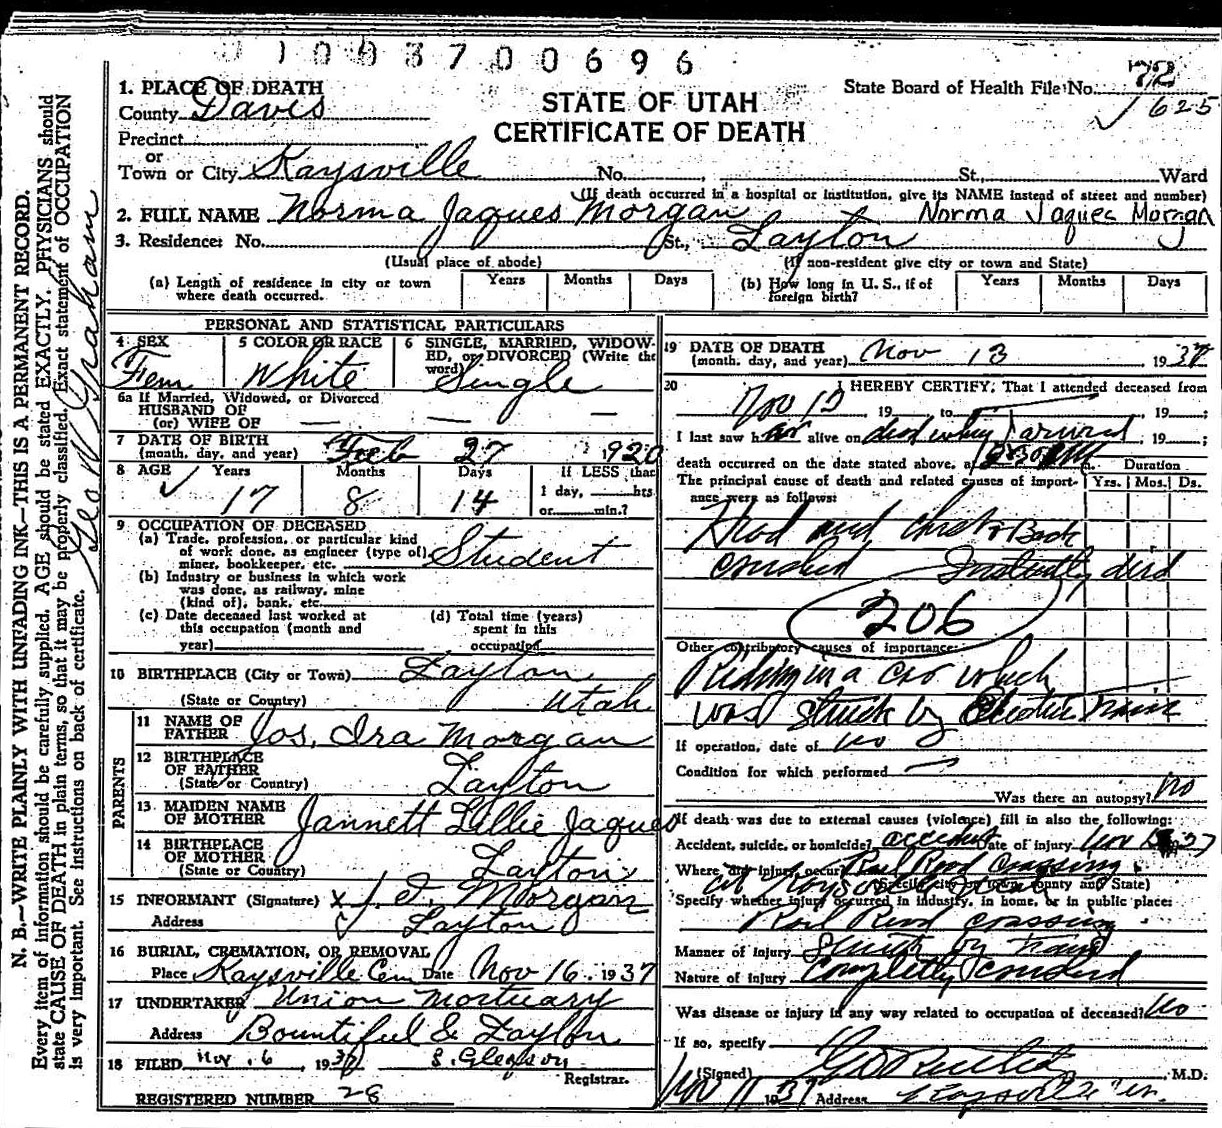 1003700696
1. PLACE OF DEATH
County Davis
Precinct
or
Town or City Kaysville No. St., Ward
STATE OF UTAH
CERTIFICATE OF DEATH
State Board of Health File No. 72
625
(If death occurred in a hospital or institution, give its NAME instead of street and number)
2. FULL NAME Norma Jaques Morgan Norma Jaques Morgan
3. Residence: No. St., Layton
(Usual place of abode) (If non-resident give city or town and State)
(a) Length of residence in city or town where death occurred. Years Months Days
(b) How long in U. S., if of foreign birth? Years Months Days
PERSONAL AND STATISTICAL PARTICULARS
4 SEX Fem
5 COLOR OR RACE White
6 SINGLE, MARRIED, WIDOWED, or DIVORCED (Write the word) Single
6a If Married, Widowed, or Divorced
HUSBAND OF
(or) WIFE OF — — —
7 DATE OF BIRTH
(month, day, and year) Feb 27 1920
8 AGE Years 17 Months 8 Days 14
If LESS than
1 day, hrs
or min.?
9 OCCUPATION OF DECEASED
(a) Trade, profession, or particular kind
of work done, as engineer (type of),
miner, bookkeeper, etc. Student
(b) Industry or business in which work
was done, as railway, mine
(kind of), bank, etc.
(c) Date deceased last worked at
this occupation (month and
year)
(d) Total time (years)
spent in this
occupation
10 BIRTHPLACE (City or Town) Layton
(State or Country) Utah
PARENTS
11 NAME OF
FATHER Jos. Ira Morgan
12 BIRTHPLACE
OF FATHER
(State or Country) Layton
13 MAIDEN NAME
OF MOTHER Jannett Lillie Jaques
14 BIRTHPLACE
OF MOTHER
(State or Country) Layton
15 INFORMANT (Signature) x J. I. Morgan
Address Layton
16 BURIAL, CREMATION, OR REMOVAL
Place Kaysville Cem Date Nov 16, 1937
17 UNDERTAKER Union Mortuary
Address Bountiful & Layton
18 FILED Nov. 6 1937 S. Gleason
Registrar.
REGISTERED NUMBER 28
19 DATE OF DEATH
(month, day, and year) Nov 13 1937
20 I HEREBY CERTIFY, That I attended deceased from
Nov 13 19 to , 19 ;
I last saw her alive on dead when I arrived, 19 ;
death occurred on the date stated above, at m. Duration
The principal cause of death and related causes of importance were as follows: Yrs. Mos. Ds.
Head and chest & Back
crushed Instantly died
206
Other contributory causes of importance:
Riding in a car which
was struck by Electric Train
If operation, date of no
Condition for which performed —
Was there an autopsy? No
If death was due to external causes (violence) fill in also the following:
Accident, suicide, or homicide? accident Date of injury Nov 13 1937
Where did injury occur? Rail Road Crossing
at Kaysville
(Specify city or town, county and State)
Specify whether injury occurred in industry, in home, or in public place:
Rail Road crossing
Manner of injury Struck by train
Nature of injury Completly crushed
Was disease or injury in any way related to occupation of deceased? No
If so, specify
(Signed) M.D.
Nov 1937 Address Kaysville
N. B.—WRITE PLAINLY WITH UNFADING INK—THIS IS A PERMANENT RECORD.
Every item of information should be carefully supplied. AGE should be stated EXACTLY. PHYSICIANS should
state CAUSE OF DEATH in plain terms, so that it may be properly classified. Exact statement of OCCUPATION
is very important. See instructions on back of certificate.
Geo W Graham